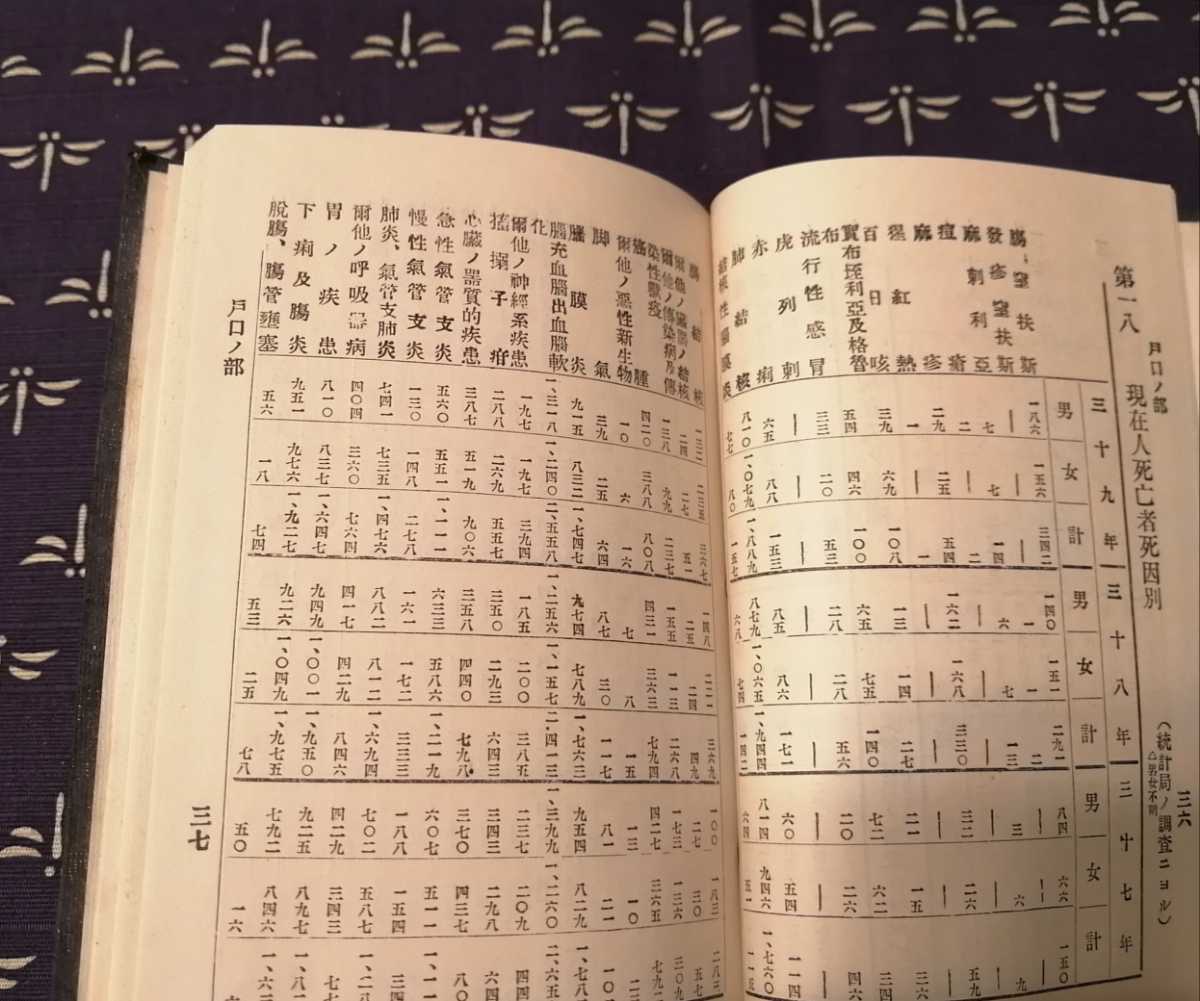 戶口ノ部 三六
第一八 現在人死亡者死因別 (統計局ノ調査ニヨル)
△男女不明
三十九年 三十八年 三十七年
男 女 計 男 女 計 男 女 計
腸窒扶斯 一八六 一五六 三四二 一四〇 一五一 二九一 八四 六六 一五〇
發疹窒扶斯 | | | 一 一 二 | | |
麻刺利亞 七 七 一四 六 七 一三 三 六 九
痘瘡 二 | 二 | | | | | |
麻疹 二九 二五 五四 一六二 一六八 三三〇 三三 二六 五九
猩紅熱 一 | 一 | | | | | |
百日咳 三九 六九 一〇八 一三 一四 二七 二一 一五 三六
實布垤利亞及格魯布 五四 四六 一〇〇 六五 七五 一四〇 七二 六二
流行性感冒 三三 二〇 五三 二八 二八 五六 二〇 二六 四六
虎列刺 | | | | | | | | |
赤痢 六五 八八 一五三 八五 八六 一七一 六〇 五四 一一四
肺結核 八一〇 一、〇七九 一、八八九 八七九 一、〇六五 一、九四四 八一四 九四六 一、七六〇
結核性腦膜炎 七七 八〇 一五七 六八 七四 一四二 六四 五一 一一五
腸結核 一三二 二三五 三六七 一四八 二二一 三六九 一〇〇 一八三 二八三
爾他ノ臟器ノ結核 二四 二七 五一 二五 二四 四九 二七 三〇 五七
爾他ノ傳染病及傳染性獸疫 一三八 九九 二三七 一五五 一一三 二六八 一七三 一三六 三〇九
癌腫 四二〇 三八八 八〇八 四三一 三六三 七九四 四二七 三六五 七九二
爾他ノ惡性新生物 一〇 六 一六 七 八 一五 一三 一〇
脚氣 三九 二五 六四 八七 三〇 一一七 八一 二一
腦膜炎 九一五 八三二 一、七四七 九七四 七八九 一、七六三 九五四 八二九
腦充血腦出血腦軟化 一、三一八 一、二四〇 二、五五八 一、二五六 一、一五七 二、四一三 一、三九九 一、二六〇
爾他ノ神經系疾患 一九七 一九七 三九四 一八五 二〇〇 三八五 二三七 二〇九
搐搦子癎 二八八 二六九 五五七 三五〇 二九三 六四三 三四三 二九八
心臟ノ器質的疾患 三八七 五一九 九〇六 三五八 四四〇 七九八 三七〇 四三七
急性氣管支炎 五六〇 五五一 一、一一一 六三三 五八六 一、二一九 六〇七 五一一
慢性氣管支炎 一三〇 一四八 二七八 一六一 一七二 三三三 一八八 一五四
肺炎、氣管支肺炎 七四一 七三五 一、四七六 八八二 八一二 一、六九四 七〇二 五八七
爾他ノ呼吸器病 四〇四 三六〇 七六四 四一七 四二九 八四六 四二九 三四三
胃ノ疾患 八一〇 八三七 一、六四七 九四九 一、〇〇一 一、九五〇 九二五 八九七
下痢及腸炎 九五一 九七六 一、九二七 九二六 一、〇四九 一、九七五 七九二 八四六
脫腸、腸管壅塞 五六 一八 七四 五三 二五 七八 五〇 一六
戶口ノ部 三七